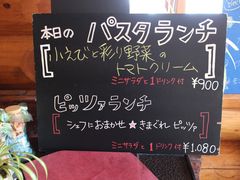 本日の パスタランチ
[小えびと彩り野菜の
トマトクリーム]
ミニサラダと1ドリンク付 ¥900
ピッツァランチ
[シェフにおまかせ★きまぐれピッツァ]
ミニサラダと1ドリンク付 ¥1.080